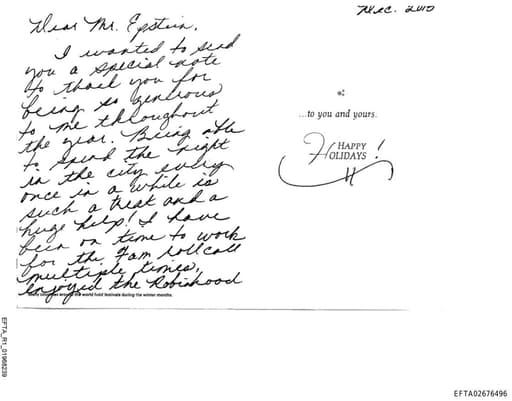 Dec. 2010
Dear Mr. Epstein,
I wanted to send
you a special note
to thank you for
being so generous
to me throughout
the year. Being able
to spend the night
in the city every
once in a while is
such a treat and a
huge help! I have
been on time to work
for the 7am rollcall
multiple times,
enjoyed the Robinhood
around the world hold festivals during the winter months.
...to you and yours.
HAPPY
HOLIDAYS!
EFTA_R1_01968239
EFTA02676496